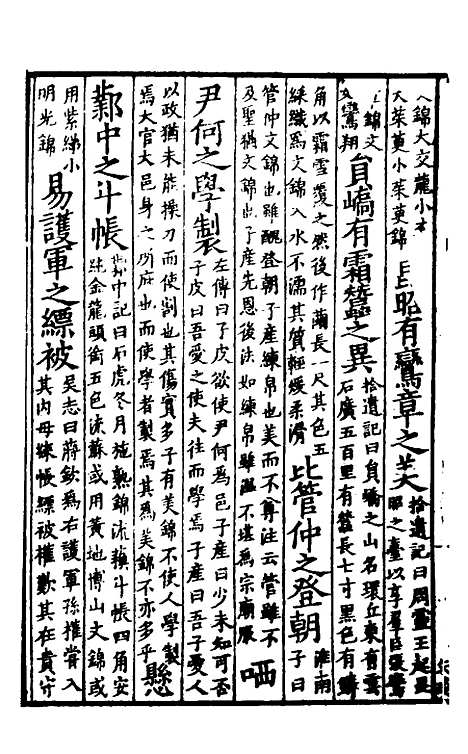 錦大交龍小交
大茱萸小茱萸錦
昆昭有鸞章之美
拾遺記曰周靈王起昆
昭之臺以享羣臣張鸞
文錦
文鸞翔
員嶠有霜蠶之異
拾遺記曰員嶠之山名環丘東有雲
石廣五百里有蠶長七寸黑色有鱗
角以霜雪覆之然後作繭長一尺其色五
綵織爲文錦入水不濡其質輕緩柔滑
比管仲之登朝
淮南
子曰
管仲文錦也雖醜登朝子產練帛也美而不尊注云管雖不
及聖猶文錦也子產先恩後法如練帛雖溫不堪爲宗廟服
哂
尹何之學製
左傳曰子皮欲使尹何爲邑子產曰少未知可否
子皮曰吾愛之使夫往而學焉子產曰吾子愛人
以政猶未能操刀而使割也其傷實多子有美錦不使人學製
焉大官大邑身之所庇也而使學者製焉其爲美錦不亦多乎
懸
鄴中之斗帳
鄴中記曰石虎冬月施熟錦流蘇斗帳四角安
純金龍頭銜五色流蘇或用黃地博山文錦或
用紫綈小
明光錦
易護軍之縹被
吳志曰蔣欽爲右護軍孫權嘗入
其內母疎帳縹被權歎其在貴守